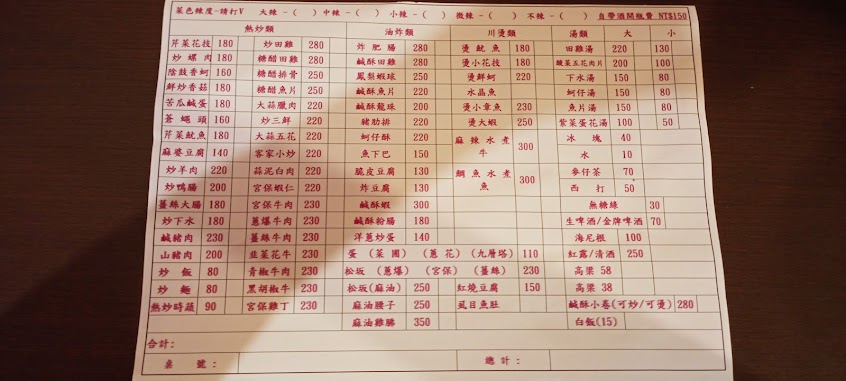 菜色辣度-請打V 大辣-( ) 中辣-( ) 小辣-( ) 微辣-( ) 不辣-( ) 自帶酒開瓶費 NT$150
熱炒類 油炸類 川燙類 湯類 大 小
芹菜花技 180 炒田雞 280 炸肥腸 280 燙魷魚 180 田雞湯 220 130
炒螺肉 180 糖醋田雞 280 鹹酥田雞 280 燙小花技 180 酸菜五花肉片 200 100
陰鼓香蚵 160 糖醋排骨 250 鳳梨蝦球 250 燙鮮蚵 220 下水湯 150 80
鮮炒香菇 180 糖醋魚片 250 鹹酥魚片 220 水晶魚 蚵仔湯 150 80
苦瓜鹹蛋 180 大蒜臘肉 220 鹹酥龍珠 200 燙小章魚 230 魚片湯 150 80
蒼蠅頭 160 炒三鮮 220 豬肋排 220 燙大蝦 250 紫菜蛋花湯 100 50
芹菜魷魚 180 大蒜五花 220 蚵仔酥 220 麻辣水煮牛 300 冰塊 40
麻婆豆腐 140 客家小炒 220 魚下巴 150 水 10
炒羊肉 220 蒜泥白肉 220 脆皮豆腐 130 鯛魚水煮魚 300 麥仔茶 70
炒鴨腸 200 宮保蝦仁 220 炸豆腐 130 西打 50
薑絲大腸 180 宮保牛肉 230 鹹酥蝦 300 無糖綠 30
炒下水 180 蔥爆牛肉 230 鹹酥粉腸 180 生啤酒/金牌啤酒 70
鹹豬肉 230 薑絲牛肉 230 洋蔥炒蛋 140 海尼根 100
山豬肉 200 韭菜花牛 230 蛋 (菜圃) (蔥花) (九層塔) 110 紅露/清酒 250
炒飯 80 青椒牛肉 230 松坂 (蔥爆) (宮保) (薑絲) 230 高粱 58
炒麵 80 黑胡椒牛 230 松坂(麻油) 250 紅燒豆腐 150 高粱 38
熱炒時蔬 90 宮保雞丁 230 麻油腰子 250 虱目魚肚 鹹酥小卷(可炒/可燙) 280
麻油雞腸 350 白飯(15)
合計:
桌號: 總計: